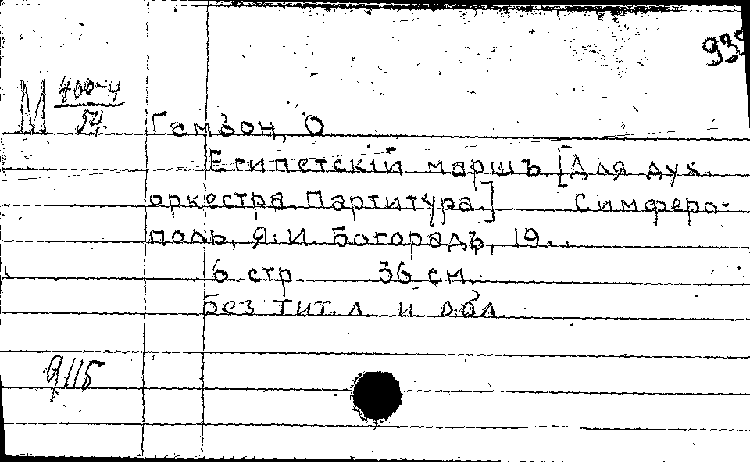 935
М 400-4
54
Гамзон, О
Египетскій маршъ [Для дух.
оркестра. Партитура.] Симферо-
поль, Я.И. Богорадъ, 19..
6 стр 36 см.
без тит. л. и обл
9115